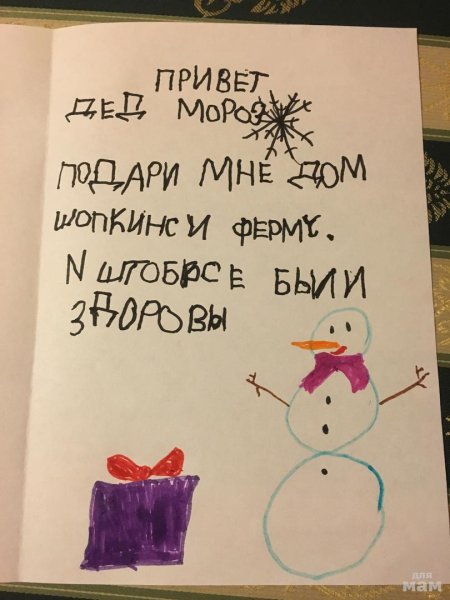 ПРИВЕТ
ДЕД МОРОЗ
ПОДАРИ МНЕ ДОМ
ШОПКИНС И ФЕРМУ.
И ШТОБ ВСЕ БЫЛИ
ЗДОРОВЫ
для
мам